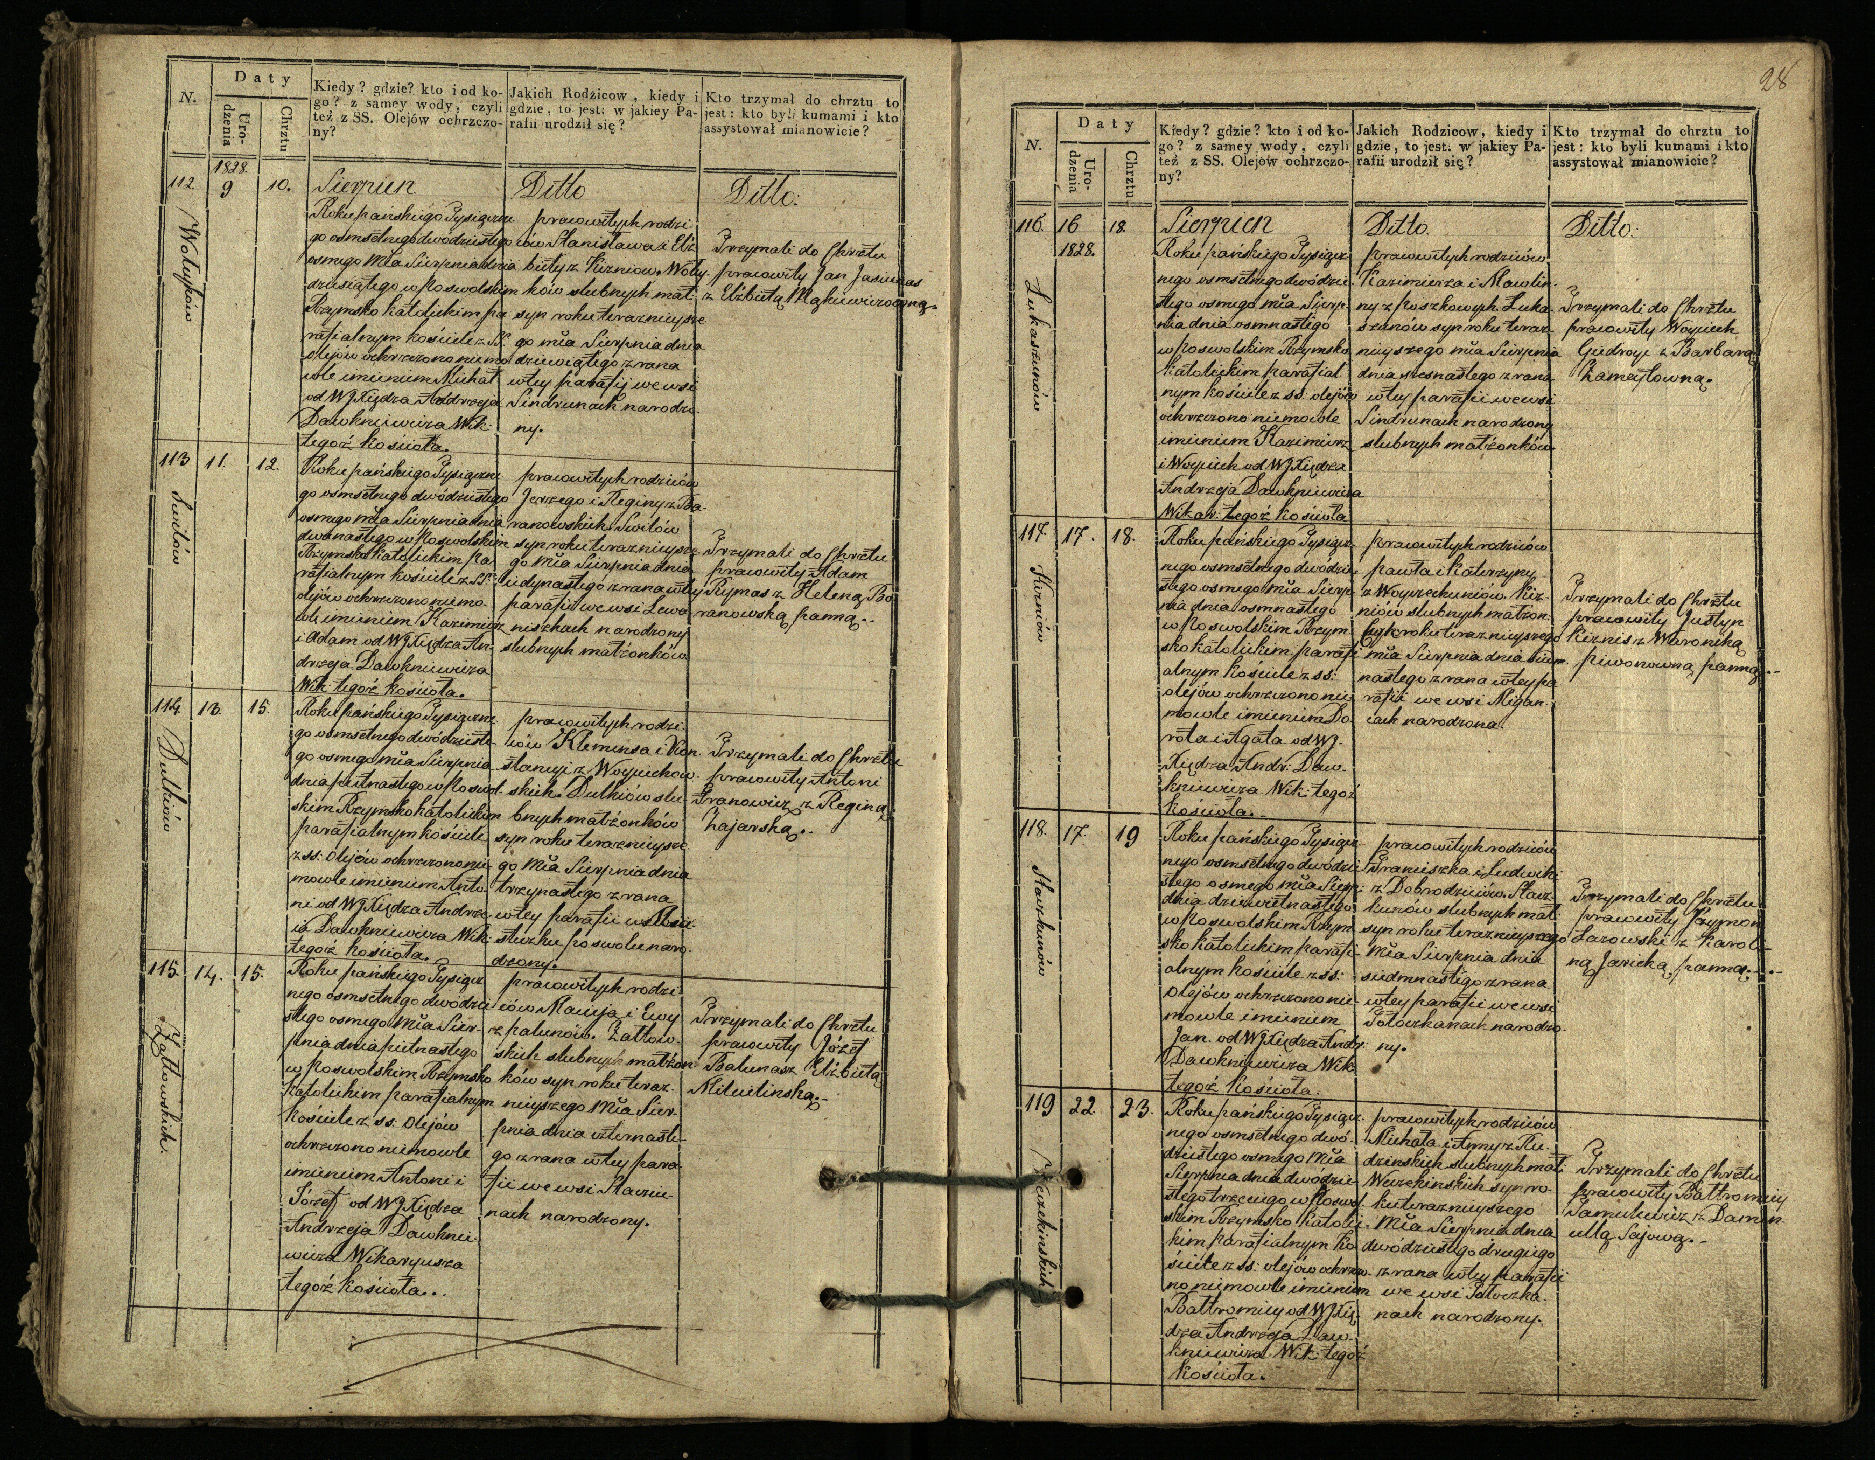 N.
Daty
Uro-
dzenia
Chrztu
Kiedy? gdzie? kto i od ko-
go? z samey wody, czyli
też z SS. Olejów ochrzczo-
ny?
Jakich Rodzicow, kiedy i
gdzie, to jest: w jakiey Pa-
rafii urodził się?
Kto trzymał do chrztu to
jest: kto byli kumami i kto
assystował mianowicie?
112
1828.
9
10.
Wołyków
Sierpien
Roku pańskiego Tysiączne
go osmsetnego dwódziestego
osmego Mca Sierpnia dnia
dziesiątego w Poswolskim
Rzymsko Katolickim pa
rafialnym kościele z SS.
olejów ochrzczono niemo
wle imieniem Michał
od WJ Xiędza Andrzeja
Dawkniewicza Wik:
tegoż kościoła.
Ditto
pracowitych rodzi
ców Stanisława i Elż
biety z Kizniow Woły
ków slubnych mał
syn roku teraznieysze
go mca Sierpnia dnia
dziewiątego z rana
w tey parafij we wsi
Sindrunach narodzo
ny.
Ditto:
Trzymali do Chrztu
pracowity Jan Jasiunas
z Elżbietą Mąkiewiczowną.
113
11.
12.
Switów
Roku pańskiego Tysiączne
go osmsetnego dwódziestego
osmego mca Sierpnia dnia
dwanastego w Poswolskim
Rzymsko Katolickim Pa
rafialnym kościele z SS.
olejów ochrzczono niemo-
wle imieniem Kazimierz
i Adam od WJ Xiędza An-
drzeja Dawkniewicza
Wik tegoż kościoła.
pracowitych rodziców
Jerzego i Reginy z Ba-
ranowskich Switów
syn roku teraznieysze
go mca Sierpnia dnia
jedynastego z rana w tey
parafii we wsi Lewa
niszkach narodzony
slubnych małżonków
Trzymali do Chrztu
pracowity Adam
Rymas z Heleną Ba
ranowską panną.
114
13.
15
Dulkiów
Roku Pańskiego Tysiączne
go osmsetnego dwódzieste-
go osmego mca Sierpnia
dnia piętnastego w Poswol
skim Rzymsko Katolickim
parafialnym kościele
z ss: olejów ochrzczono nie
mowle imieniem Anto
ni od WJ Xiędza Andrze-
ia Dawkniewicza Wik:
tegoż kościoła.
pracowitych rodzi-
ców Klemensa i Kon
stancyi z Woyciechow
skich Dulkiów slu-
bnych małżonków
syn roku teraznieysze
go Mca Sierpnia dnia
trzynastego z rana
w tey parafii w Mia
steczku Poswolu naro
dzony.
Trzymali do Chrztu
pracowity Antoni
Iranowicz z Reginą
Zajarską.
115
14.
15.
Załłowskich
Roku pańskiego Tysiącz
nego osmsetnego dwódzie
stego osmego Mca Sier-
pnia dnia piętnastego
w Poswolskim Rzymsko
Katolickim parafialnym
kościele z ss. olejów
ochrzczono niemowle
imieniem Antoni i
Józef od WJ Xiędza
Andrzeja Dawknie-
wicza Wikaryusza
tegoż kościoła.
pracowitych rodzi
ców Macieja i Ewy
z Palunów Załłow-
skich slubnych małżon
ków syn roku teraz-
nieyszego Mca Sier-
pnia dnia czternaste-
go z rana w tey para
fii we wsi Staczu-
nach narodzony.
Trzymali do Chrztu
pracowity Józef
Balunasz Elżbietą
Milwilinską.
28
N.
Daty
Uro-
dzenia
Chrztu
Kiedy? gdzie? kto i od ko-
go? z samey wody, czyli
też z SS. Olejów ochrzczo-
ny?
Jakich Rodzicow, kiedy i
gdzie, to jest: w jakiey Pa-
rafii urodził się?
Kto trzymał do chrztu to
jest: kto byli kumami i kto
assystował mianowicie?
116.
16
1828.
18.
Łukaszunów
Sierpien
Roku pańskiego Tysiącz-
nego osmsetnego dwódzie
stego osmego mca Sierp-
nia dnia osmnastego
w Poswolskim Rzymsko
Katolickim parafial
nym kościele z ss olejów
ochrzczono niemowle
imieniem Kazimierz
i Woyciech od WJ Xiędza
Andrzeja Dawkniewicza
Wikar: tegoż kościoła
Ditto
pracowitych rodziców
Kazimierza i Mawlin-
ny z Poszkowych Łuka
szunów syn roku teraz
nieyszego mca Sierpnia
dnia szesnastego z rana
w tey parafii we wsi
Sindrunach narodzony
slubnych małżonków
Ditto:
Trzymali do Chrztu
pracowity Woyciech
Giedroyc z Barbarą
Zameytowną.
117.
17.
18.
Kizniów
Roku pańskiego Tysiącz-
nego osmsetnego dwódzie
stego osmego mca Sierp
nia dnia osmnastego
w Poswolskim Rzym
sko katolickim parafi
alnym kościele z ss:
olejów ochrzczono nie
mowle imieniem Do
rota i Agata od WJ.
Xiędza Andr: Daw-
kniewicza Wik: tegoż
kościoła.
pracowitych rodziców
Pawła i Katarzyny
z Woyzechuniów Kiz-
niów slubnych małżon
ków roku teraznieyszego
mca Sierpnia dnia siedm
nastego z rana w tey pa
rafii we wsi Migan-
cach narodzona.
Trzymali do Chrztu
pracowity Justyn
Kiznis z Weroniką
Piwonowną panną.
118.
17.
19
Stackunów
Roku pańskiego Tysiącz
nego osmsetnego dwódzie
stego osmego mca Sierp:
dnia dziewietnastego
w Poswolskim Rzym
sko katolickim parafi
alnym kościele z ss:
olejów ochrzczono nie-
mowle imieniem
Jan od WJ Xiędza Andr:
Dawkniewicza Wik
tegoż kościoła.
pracowitych rodziców
Franciszka i Ludwiki
z Dobrodziców Stac-
kunów slubnych mał
syn roku teraznieyszego
mca Sierpnia dnia
siedmnastego z rana
w tey parafii we wsi
Potoczkanach narodzo-
ny.
Trzymali do Chrztu
pracowity Szymon
Łazowski z Karoli-
ną Jaricką panną.
119
22.
23.
Weczekinskich
Roku pańskiego Tysiącz
nego osmsetnego dwó-
dziestego osmego Mca
Sierpnia dnia dwódzie-
stego trzeciego w Poswol
skim Rzymsko Katolic-
kim parafialnym ko
ściele z ss: olejów ochrzczo-
no niemowle imieniem
Bałtromiey od WJ Xię-
dza Andrzeja Daw-
kniewicza Wik: tegoż
kościoła.
pracowitych rodziców
Michała i Anny z Ru-
dzinskich slubnych mał
Weczekinskich syn ro-
ku teraznieyszego
Mca Sierpnia dnia
dwódziestego drugiego
z rana w tey parafii
we wsi Potoczka-
nach narodzony.
Trzymali do Chrztu
pracowity Bałtromiey
Samulewicz z Damin
cellą Sajową.